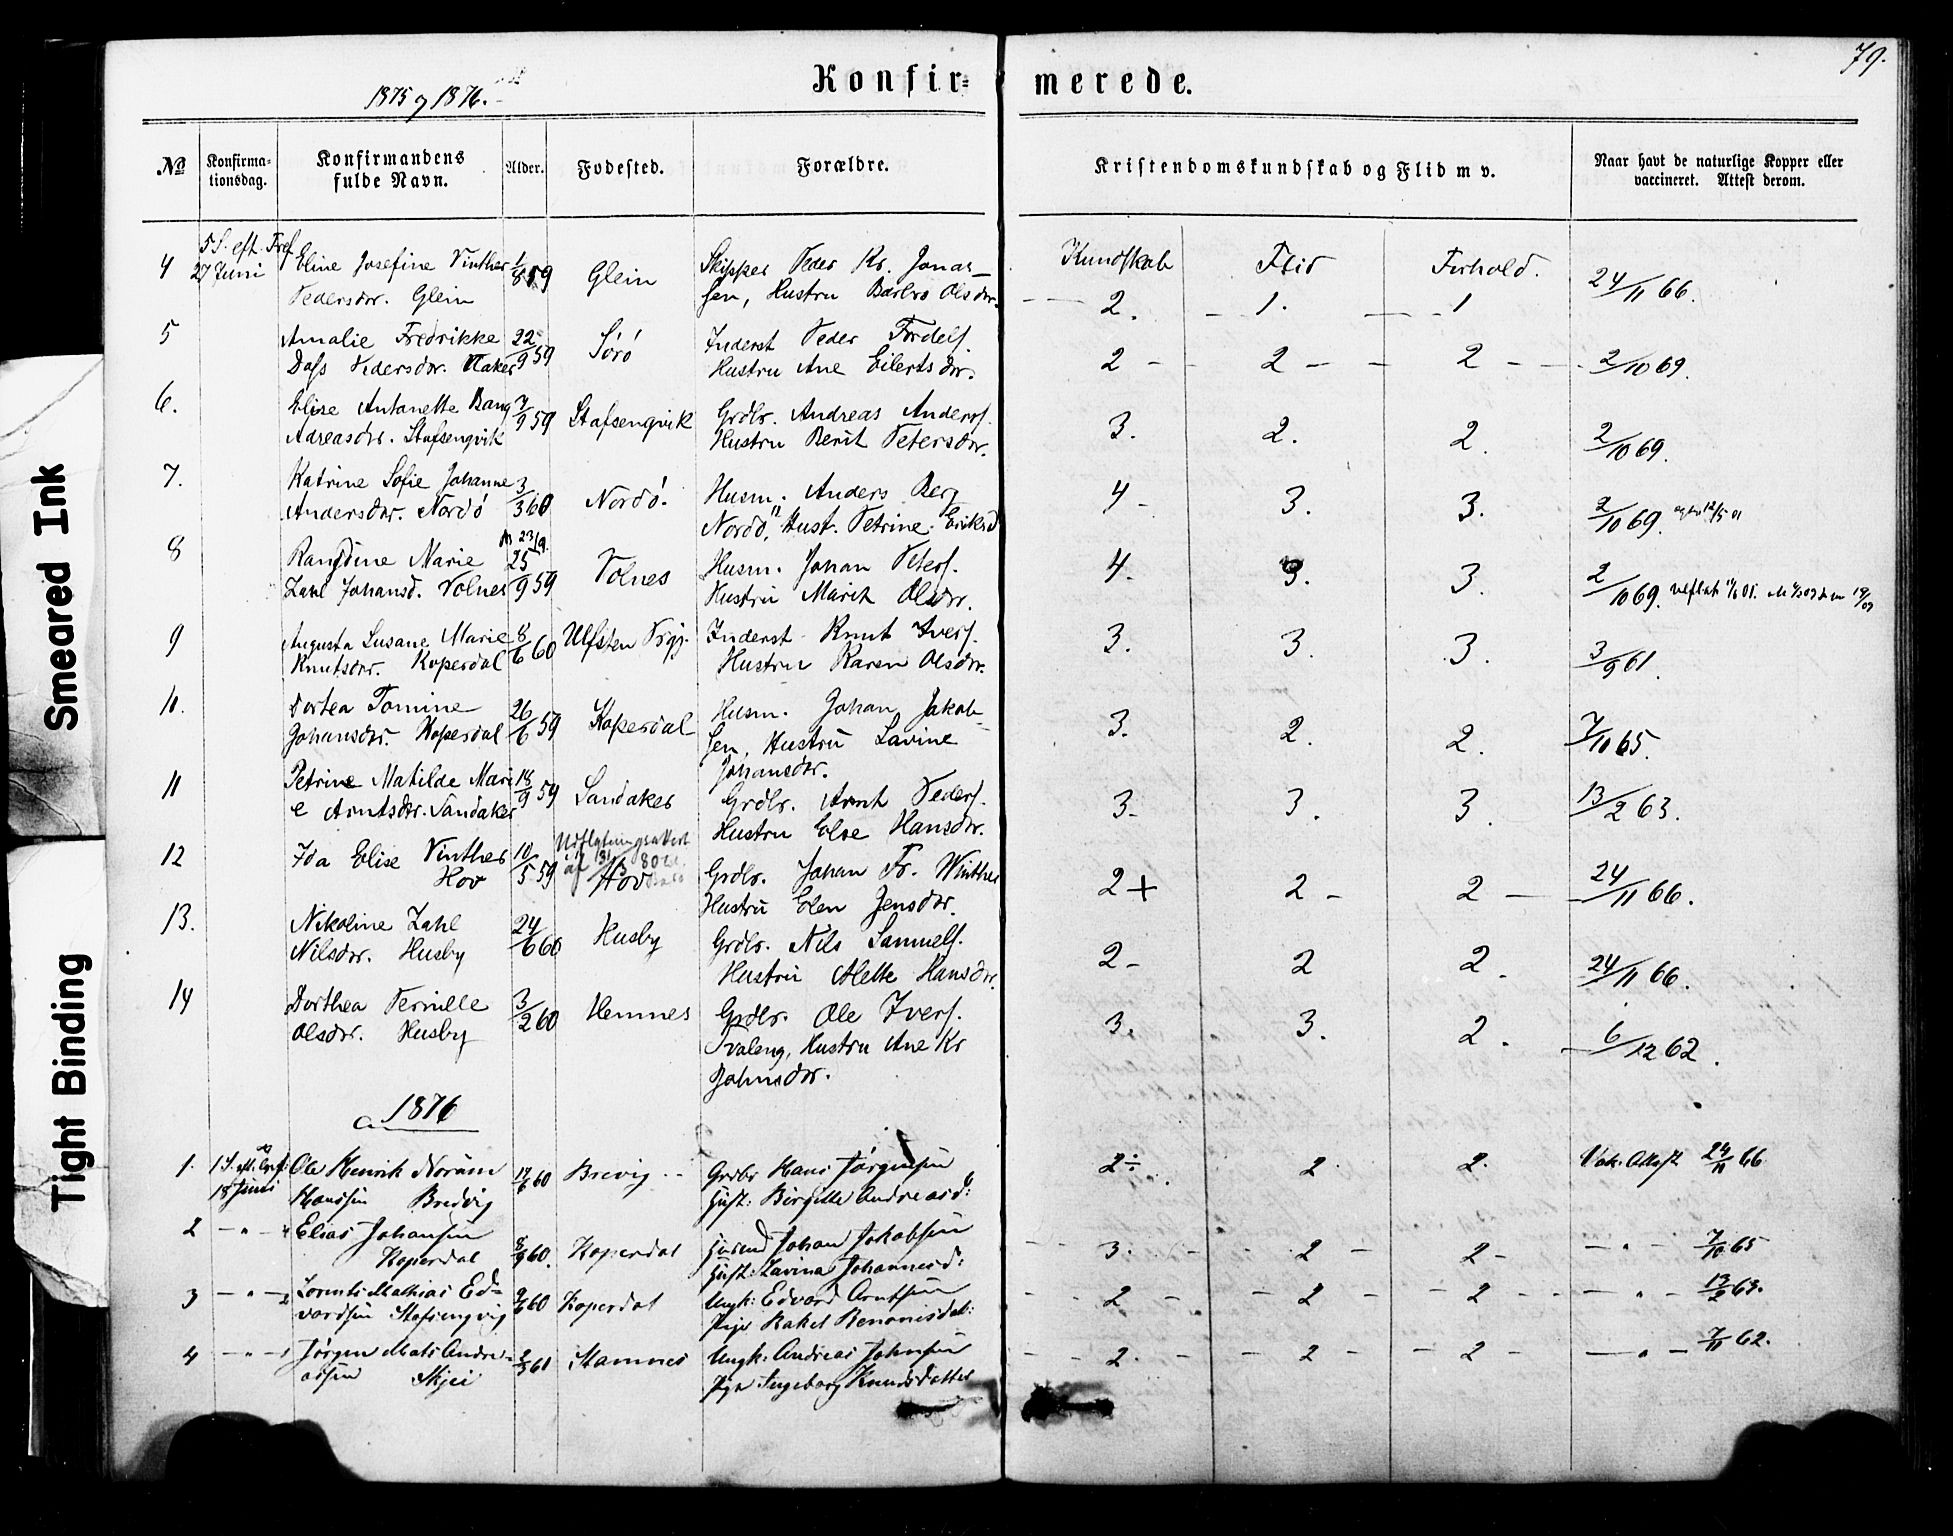 79.
Konfir- merede.
1875 og 1876.
No
Konfirma-
tionsdag.
Konfirmandens
fulde Navn.
Alder.
Fodested.
Forældre.
Kristendomskundskab og Flid m v.
Naar havt de naturlige Kopper eller
vaccineret. Attest derom.
Kundskab Flid Forhold.
4 5 S. eft. Tref. Eline Josefine Vinther 1/8 59 Glein Skipper Peder Kr. Jonas- 2. 1. 1 24/11 66.
27 Juni Pedersdr. Glein sen, Hustru Barbro Olsdr.
5 Amalie Fredrikke 22/9 59 Sörö Inderst Peder Fordels. 2 - 2 - 2 - 2/10 69.
Dass Pedersdr. Hustru Ane Eilertsdr.
6. Elise Antonette Bang 7/9 59 Stafsengvik Grdbr. Andreas Anders. 3. 2. 2. 2/10 69.
Adreasdr. Stafsengvik Hustru Berit Petersdr.
7. Katrine Sofie Johanne 3/3 60 Nordö. Husm. Anders Berg 4 - 3. 3. 2/10 69.
Andersdr. Nordö Nordö, Hust. Petrine Eriksd
8 Randine Marie 25/9 59 Volnes Husm. Johan Peters. 4. 3. 3. 2/10 69.
Zahl Johansd. Volnes Hustru Marit Olsdr.
9 Augusta Susane Marie 8/6 60 Ulfsten Inderst Knut Ivers. 3. 3. 3. 3/9 61.
Knutsdr. Koperdal Hustru Karen Olsdr.
10. Dortea Tomine 26/6 59 Koperdal Husm. Johan Jakob- 3. 2. 2. 7/10 65.
Johansdr. Koperdal sen, Hustru Lavine
Johansdr.
11 Petrine Matilde Mari 18/9 59 Sandaker Grdbr. Arnt Peders. 3. 3. 3. 13/2 63.
e Arntsdr. Sandaker Hustru Else Hansdr.
Udflytningsattest
af 80
12 Ida Elise Vinther 10/5 59 Hov Grdbr. Johan Fr. Winther 2+ 2 - 2 - 24/11 66.
Hov Hustru Elen Jensdr.
13. Nikoline Zahl 24/6 60 Husby Grdbr. Nils Samuels. 2- 2 2. 24/11 66.
Nilsdr. Husby Hustru Mette Hansdr.
14 Dorthea Pernille 3/2 60 Hemnes Grdbr. Ole Ivers. 3. 3. 2. 6/12 62.
Olsdr. Husby Hustru Ane Kr
Johnsdr.
1876
1. 1 S. eft. Tref. Ole Henrik Norum 17/6 60 Brevig Grdbr Hans Jørgensen 2÷. 2 2. Vak. Attest 24/11 66
18 Juni Hansen Bredvig Hust: Birgitte Andreasd:
2 - " - Elias Johansen 8/9 60. Koperdal Johan Jakobsen 3. - 2 - 2 - - " - 7/10 65
Koperdal Hust: Lavina Johannesd:
3 - " - Lorents Mathias Ed- 9/6 60 Koperdal Ungk: Edvard Arntsen 2 - 2 - 2 - - " - 13/2 63.
vardsen Stafsengvig Pige Rakel Benonisdat:
4 - " - Jørgen Mats Andre- 2/3 61 Stamnes Ungk: Andreas Johnsen 2. - 2 - 2 - - " - 7/11 62.
assen Skjei Pige Ingeborg Knudsdatter
Smeared Ink
Tight Binding